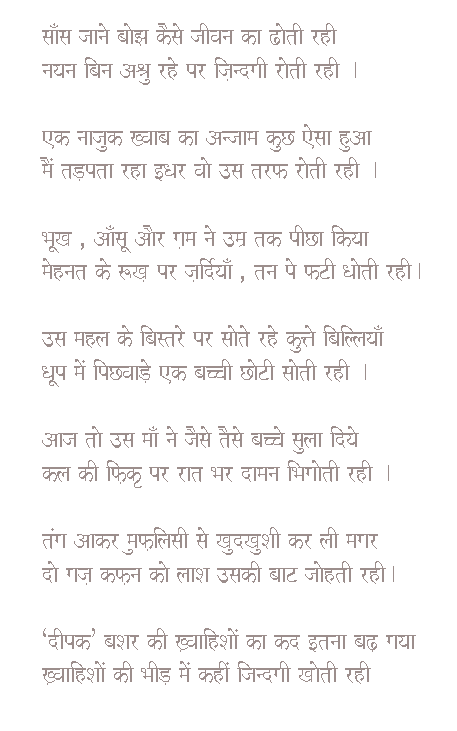 साँस जाने बोझ कैसे जीवन का ढोती रही
नयन बिन अश्रु रहे पर ज़िन्दगी रोती रही |
एक नाजुक ख्वाब का अन्जाम कुछ ऐसा हुआ
मैं तड़पता रहा इधर वो उस तरफ रोती रही |
भूख , आँसू और ग़म ने उम्र तक पीछा किया
मेहनत के रूख़ पर ज़र्दियाँ , तन पे फटी धोती रही|
उस महल के बिस्तरे पर सोते रहे कुत्ते बिल्लियाँ
धूप में पिछवाड़े एक बच्ची छोटी सोती रही |
आज तो उस माँ ने जैसे तैसे बच्चे सुला दिये
कल की फ़िक्र पर रात भर दामन भिगोती रही |
तंग आकर मुफलिसी से खुदखुशी कर ली मगर
दो गज़ कफ़न को लाश उसकी बाट जोहती रही|
‘दीपक’ बशर की ख़्वाहिशों का कद इतना बढ़ गया
ख़्वाहिशों की भीड़ में कहीं जिन्दगी खोती रही